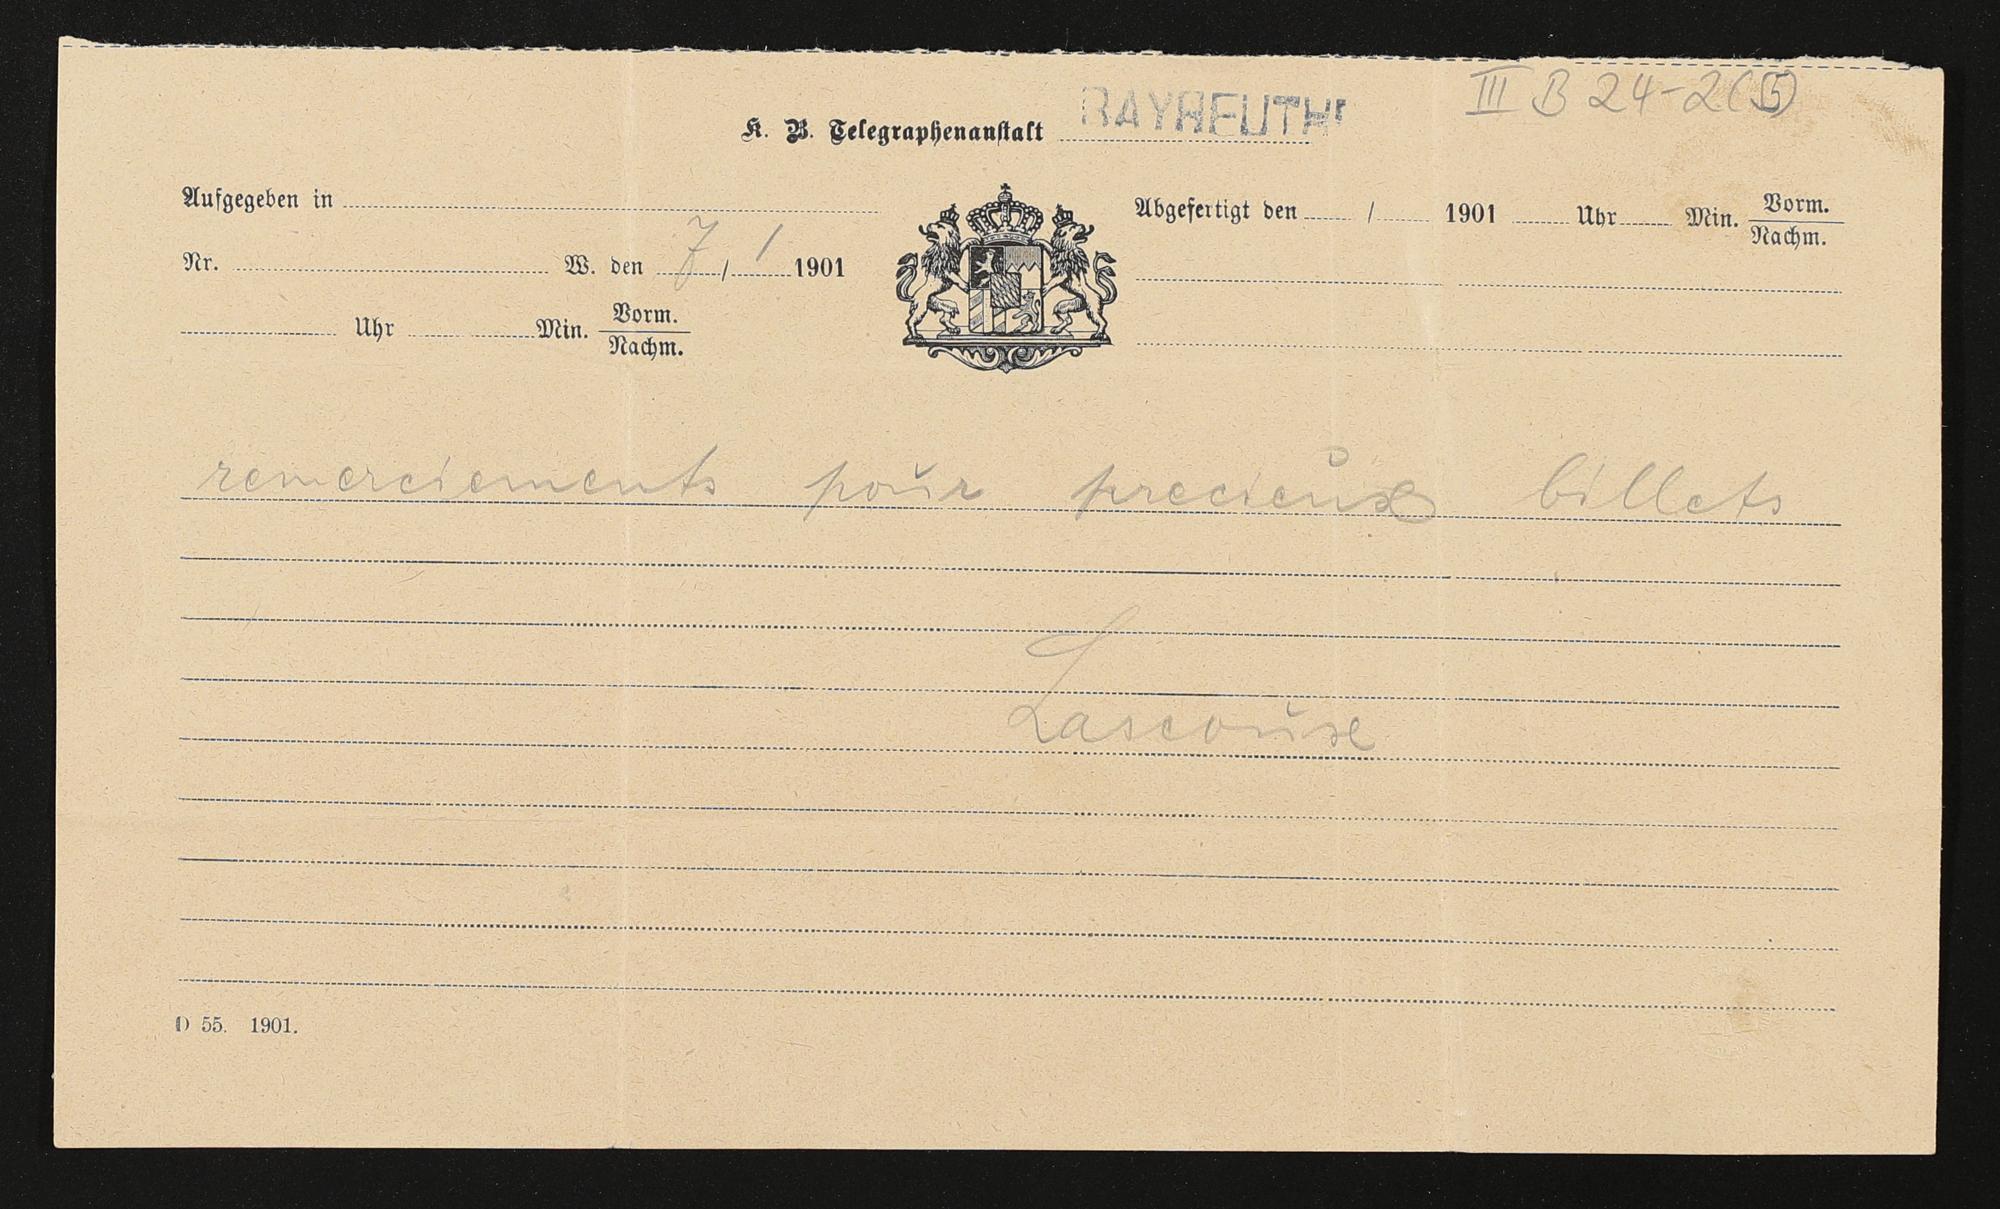 III B 24-2(5)
K. B. Telegraphenanstalt BAYREUTH
Aufgegeben in
Nr. W. den 7 / 1 1901
Uhr Min. Vorm.
Nachm.
Abgefertigt den / 1901 Uhr Min. Vorm.
Nachm.
remerciements pour precieux billets
Lascoux
D 55. 1901.